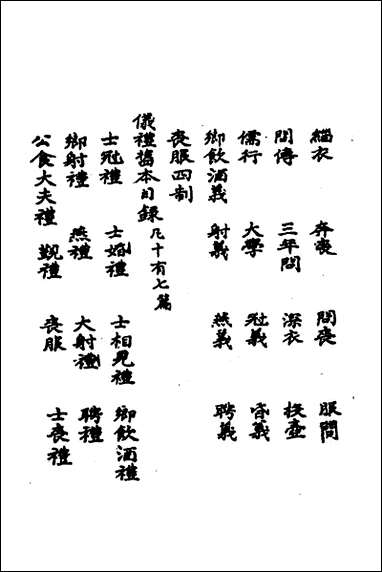 緇衣　奔喪　問喪　服問
間傳　三年問　深衣　投壺
儒行　大學　冠義　昏義
鄉飲酒義　射義　燕義　聘義
喪服四制
儀禮舊本目錄凡十有七篇
士冠禮　士婚禮　士相見禮　鄉飲酒禮
鄉射禮　燕禮　大射禮　聘禮
公食大夫禮　覲禮　喪服　士喪禮